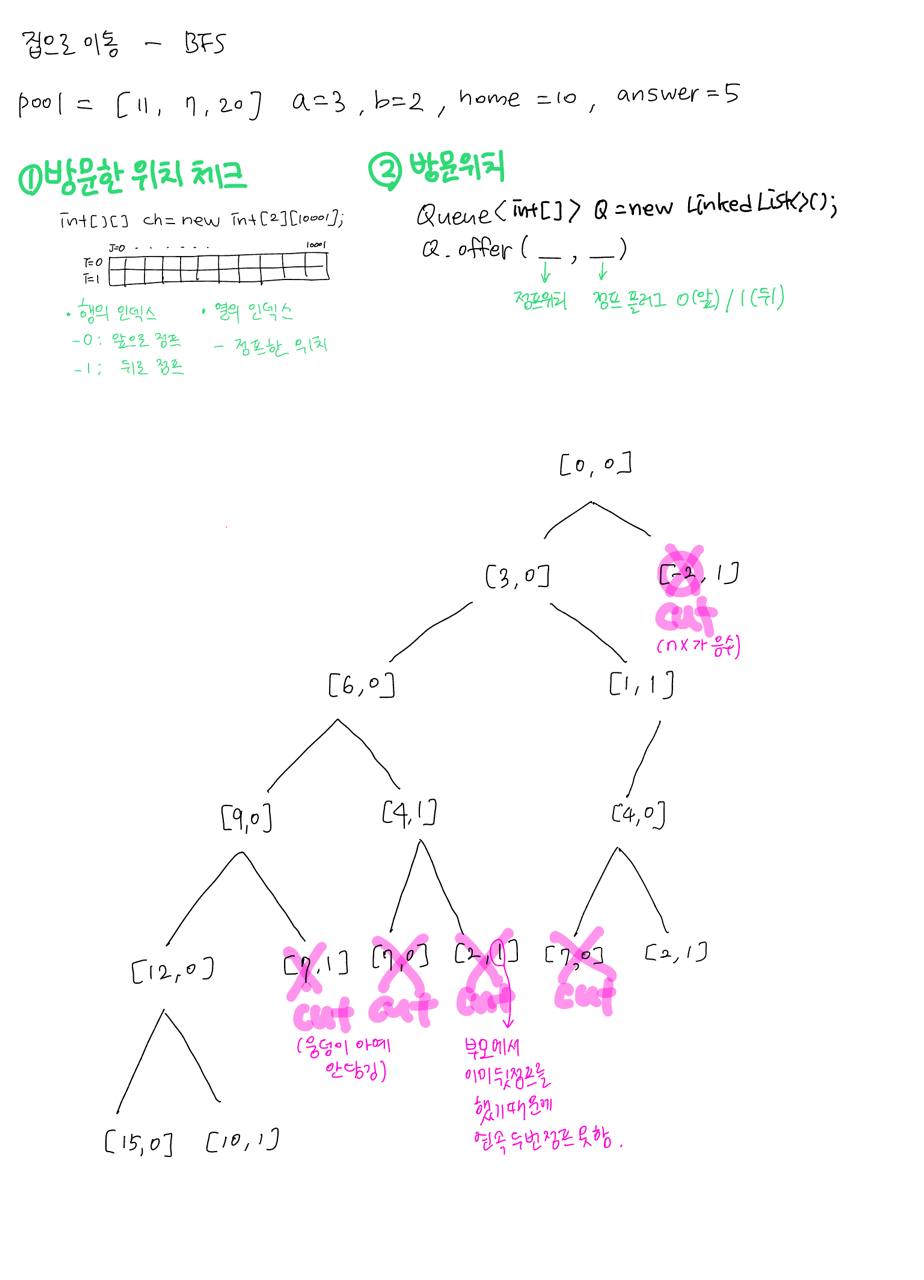 집으로 이동 - BFS
pool = [11, 7, 20] a=3, b=2, home =10, answer=5
①방문한 위치 체크
int[][] ch= new int[2][10001];
J=0 · · · · · · 10001
i=0
i=1
• 행의 인덱스
-0: 앞으로 점프
-1; 뒤로 점프
• 열의 인덱스
- 점프한 위치
② 방문위치
Queue<int[]> Q =new LinkedList<>();
Q.offer( __ , __ )
점프위치 점프 플러그 0(앞)/1(뒤)
[0,0]
[3,0] [-2,1]
cut
(nx가 음수)
[6,0] [1,1]
[9,0] [4,1] [4,0]
[12,0] [7,1] [7,0] [2,1] [7,0] [2,1]
cut cut cut cut
(웅덩이 아예
안담김)
부모에서
이미 뒷점프를
했기때문에
연속 두번점프 못함.
[15,0] [10,1]